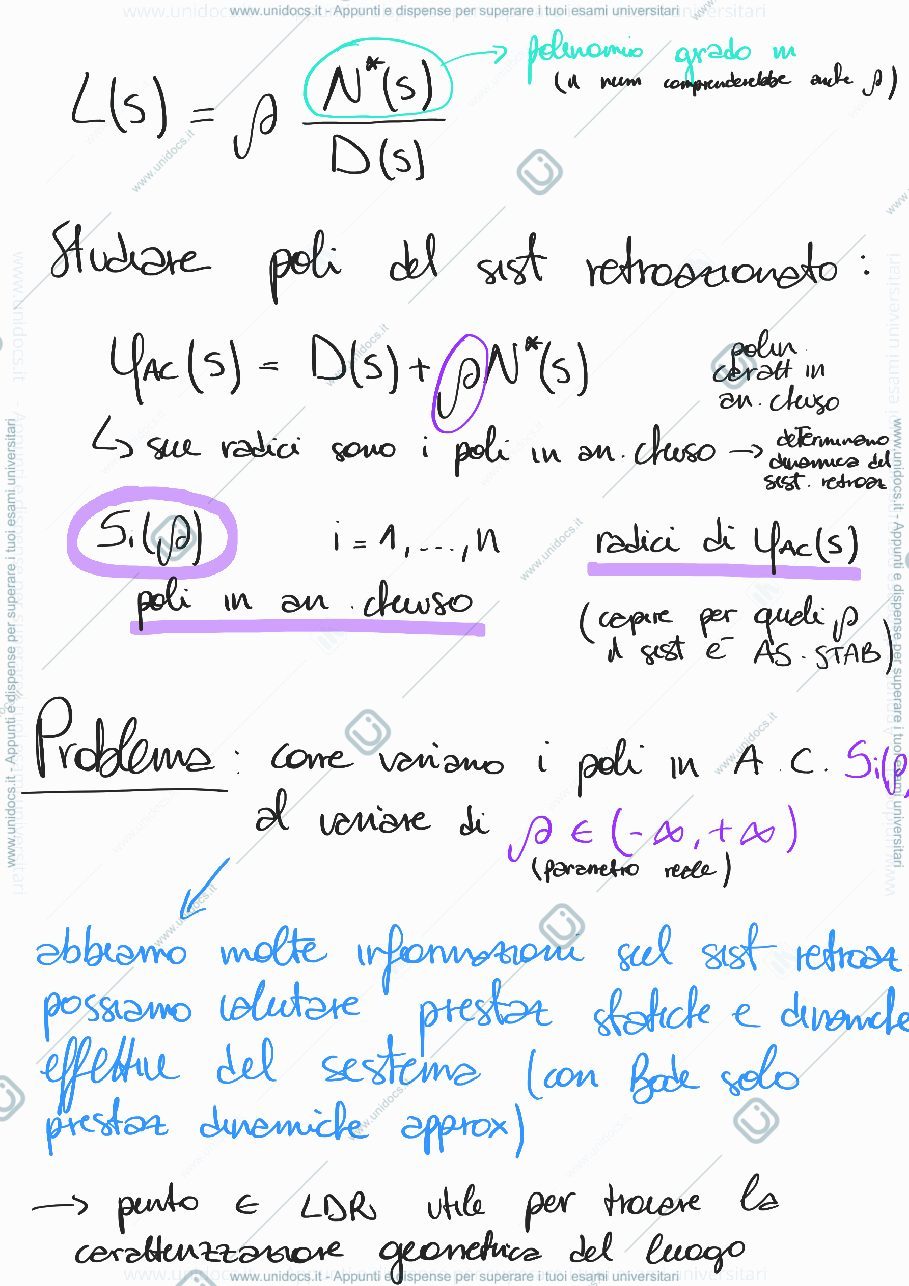 www.unidocs.it - Appunti e dispense per superare i tuoi esami universitari
L(s) = ρ N*(s) / D(s) → polinomio grado m
(il num comprenderebbe anche ρ)
Studiare poli del sist retroazionato:
φAC(s) = D(s) + ρN*(s)
polin.
caratt in
an. chiuso
↳ sue radici sono i poli in an. chiuso → determinano
dinamica del
sist. retroaz
Si(ρ) i = 1, ..., n radici di φAC(s)
poli in an. chiuso
(capire per quali ρ
il sist è AS. STAB)
Problema: come variano i poli in A.C. Si(ρ
al variare di ρ ∈ (-∞, +∞)
(parametro reale)
abbiamo molte informazioni sul sist retroaz
possiamo valutare prestaz statiche e dinamiche
effettive del sistema (con Bode solo
prestaz dinamiche approx)
→ punto ∈ LDR utile per trovare la
caratterizzazione geometrica del luogo
www.unidocs.it - Appunti e dispense per superare i tuoi esami universitari